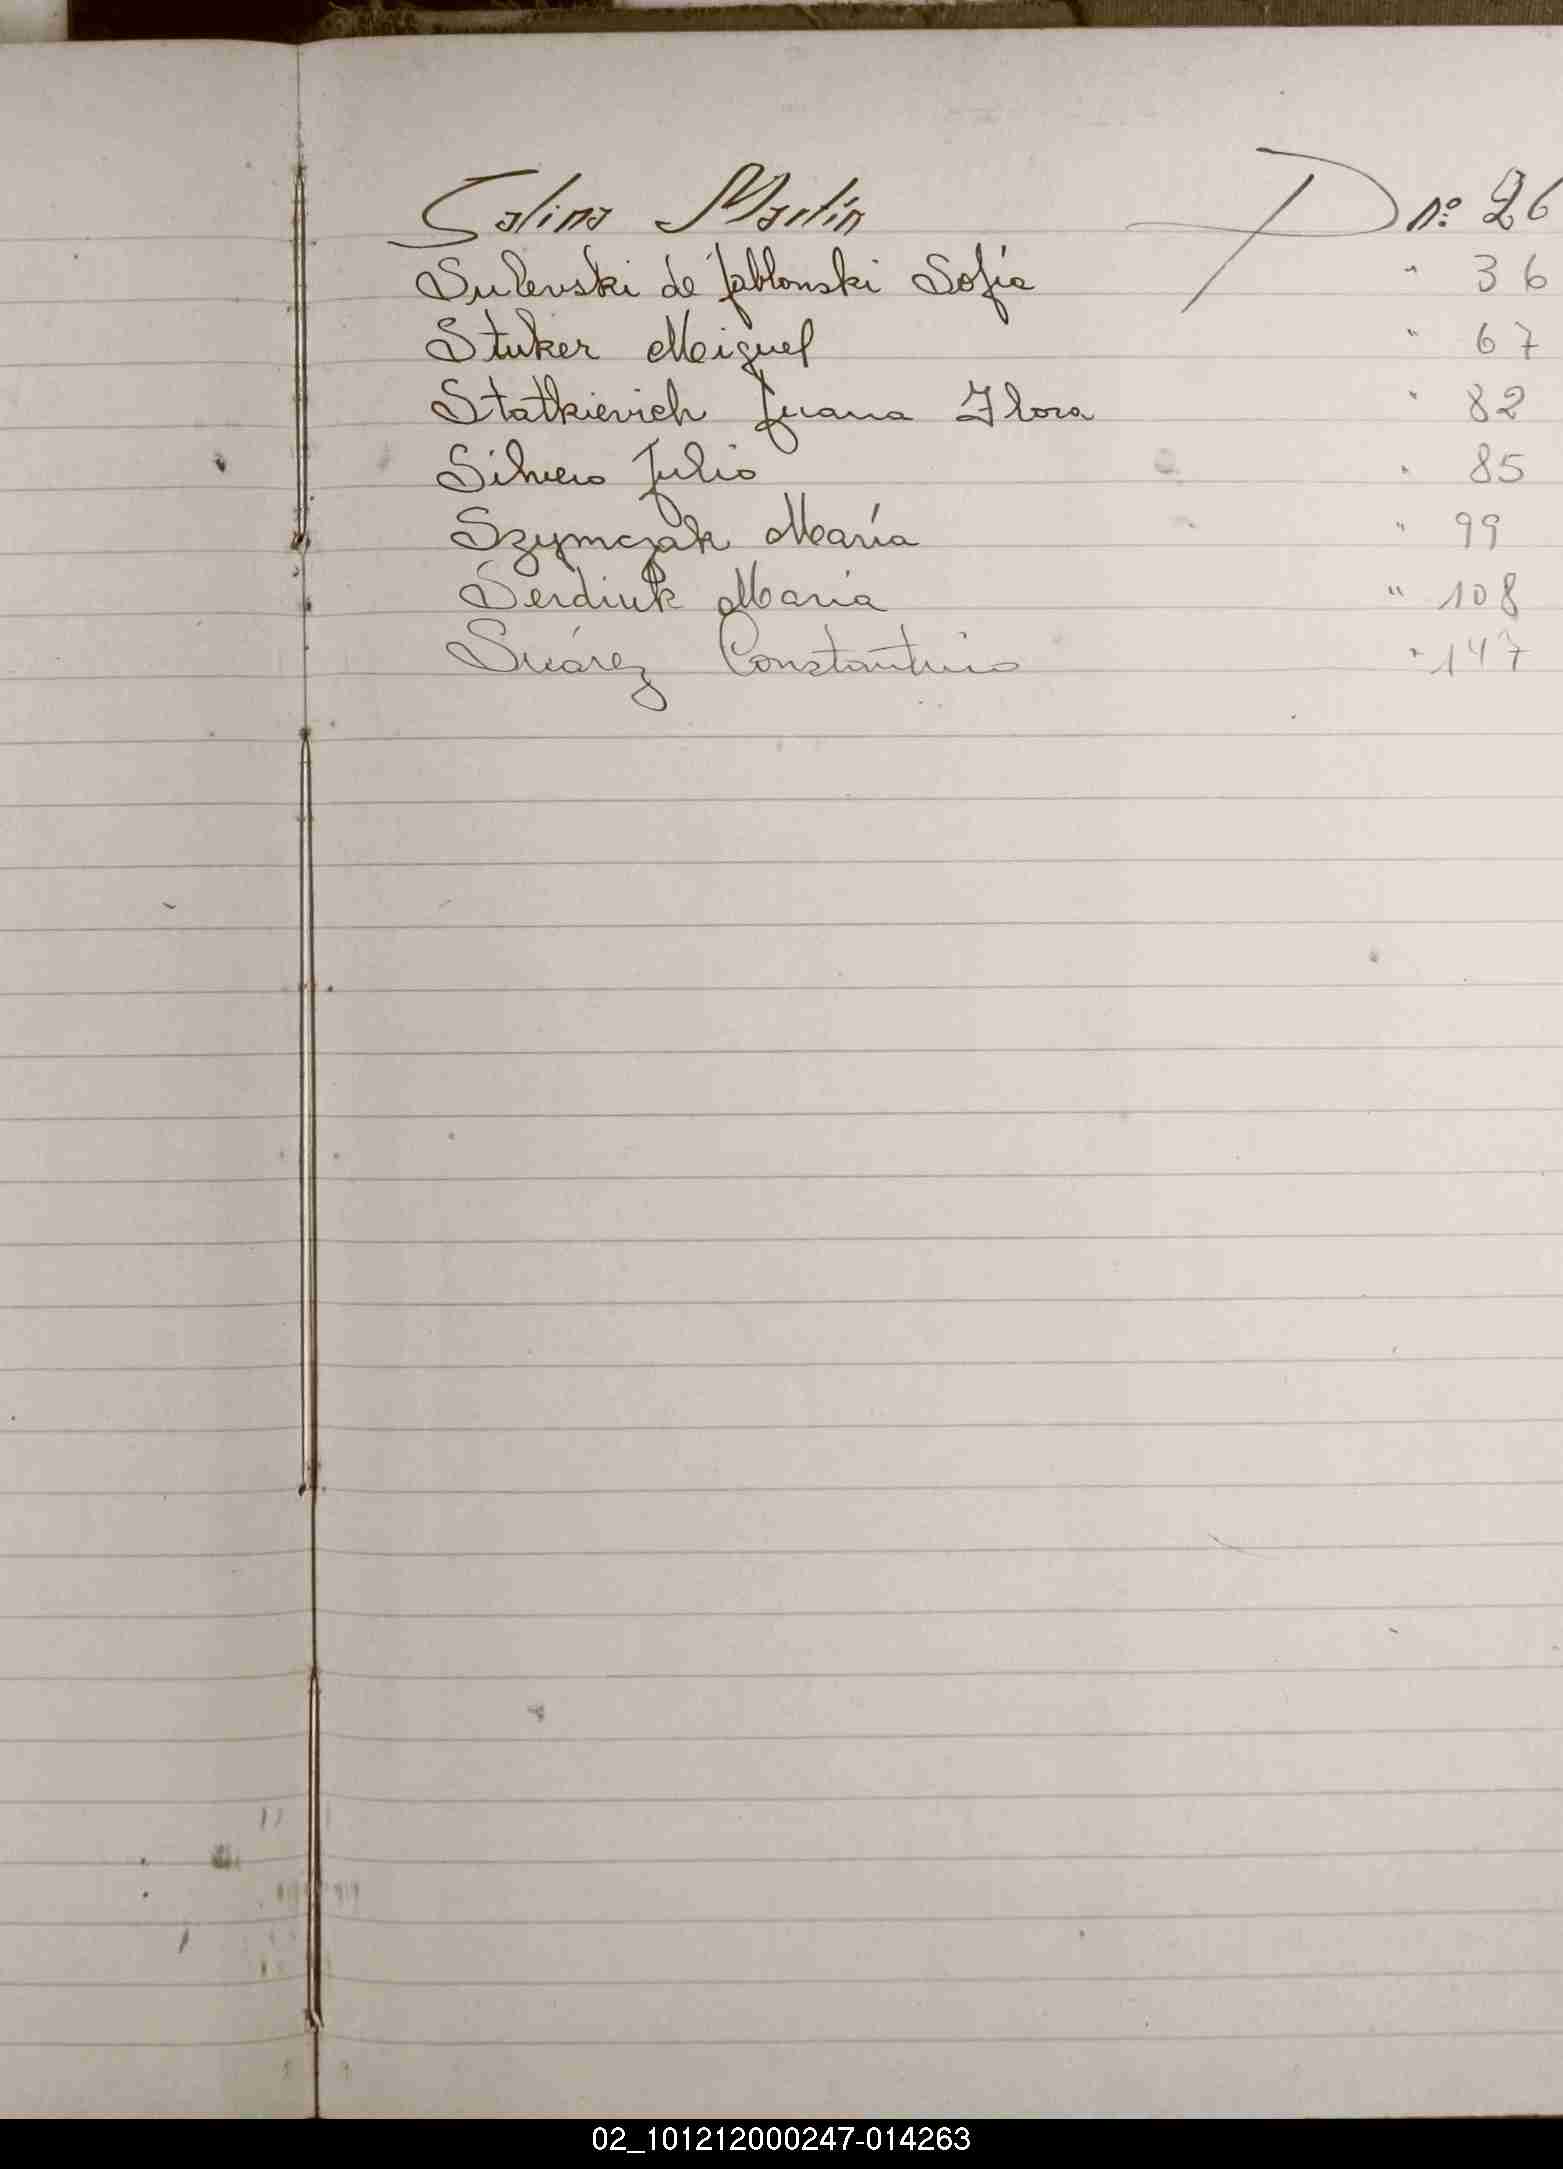 Salina Martín D nº 26
Sulevski de Jablonski Sofía " 36
Stuker Miguel " 67
Statkievich Juana Flora " 82
Silvero Julio " 85
Szymczak María " 99
Serdiuk María " 108
Suárez Constantino " 147
02_101212000247-014263